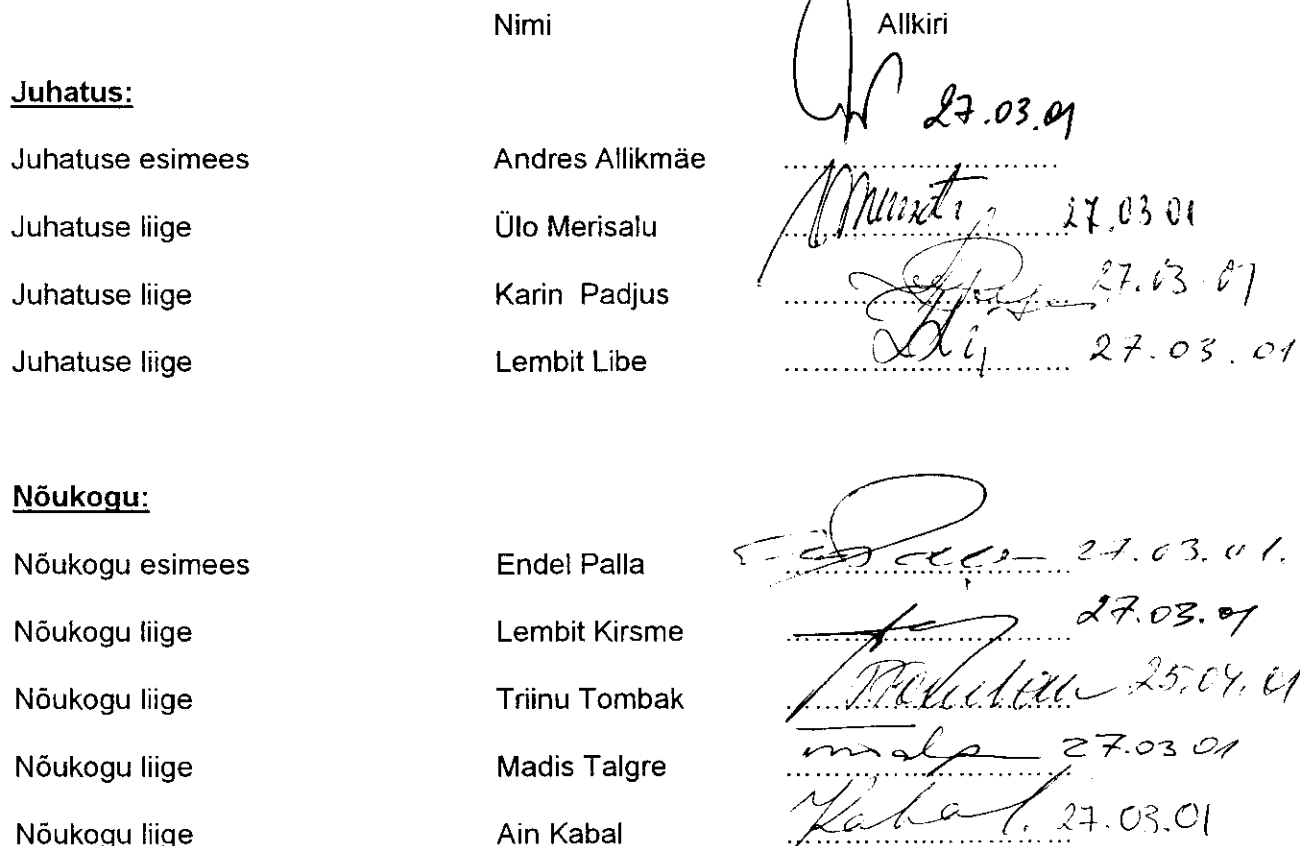 Nimi Allkiri
Juhatus:
27.03.01
Juhatuse esimees Andres Allikmäe ........................
Juhatuse liige Ülo Merisalu ........................ 27.03 01
Juhatuse liige Karin Padjus ........................ 27.03.01
Juhatuse liige Lembit Libe ........................ 27.03.01
Nõukogu:
Nõukogu esimees Endel Palla ........................ 27.03.01.
Nõukogu liige Lembit Kirsme ........................ 27.03.01
Nõukogu liige Triinu Tombak ........................ 25.04.01
Nõukogu liige Madis Talgre ........................ 27.03 01
Nõukogu liige Ain Kabal Kabal. 27.03.01